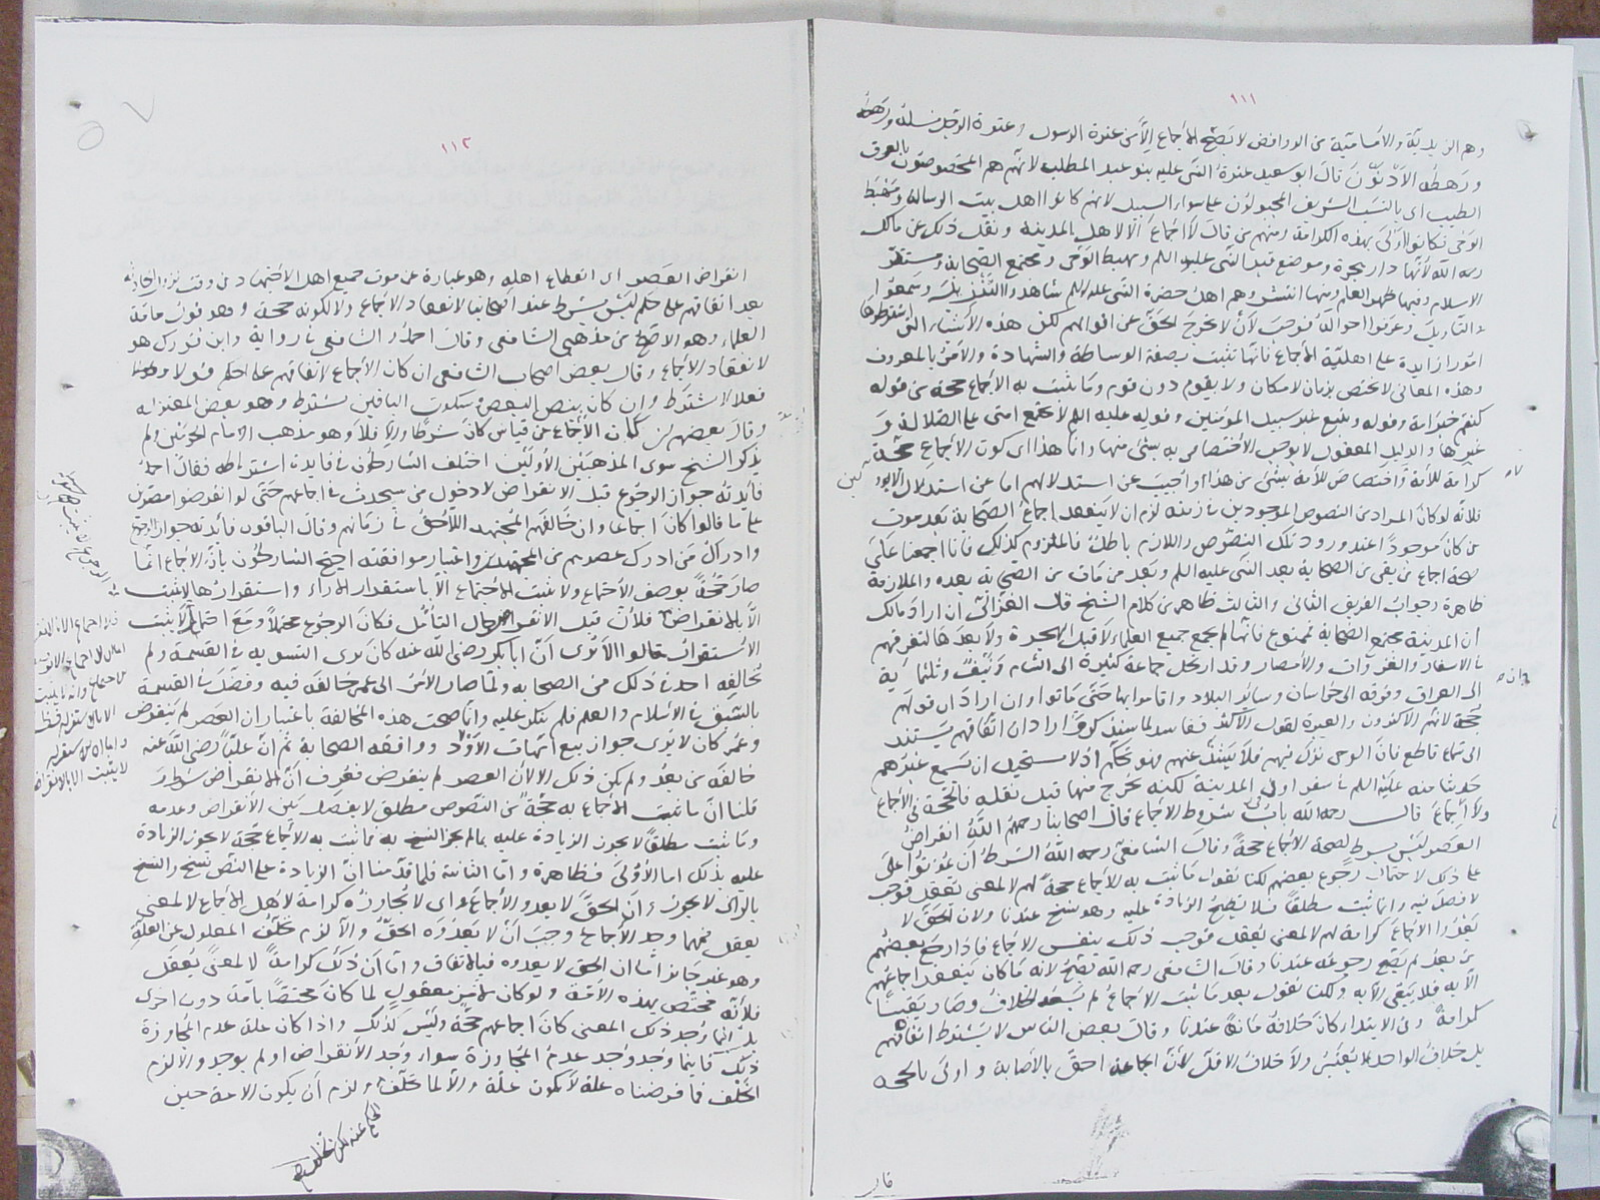 ١١١
وهم الزيدية والامامية من الروافض لا يصح الاجماع الا من عترة الرسول وعترة الرجل نسله ورهطه
ورهطه الادنون قال ابو سعيد عترة النبي عليه بنو عبد المطلب لانهم هم المخصوصون بالعرق
الطيب اي بالنسب الشريف المجبولون على سواء السبيل لانهم كانوا اهل بيت الرسالة ومهبط
الوحي فكانوا اولى بهذه الكرامة ومنهم من قال لا اجماع الا لاهل المدينة ونقل ذلك عن مالك
رحمه الله لانها دار هجرة وموضع قبر النبي عليه السلم ومهبط الوحي ومجمع الصحابة ومستقر
الاسلام وفيها ظهر العلم ومنها انتشر وهم اهل حضرة النبي عليه السلم شاهدوا التنزيل وسمعوا
التاويل وعرفوا احواله فوجب ان لا يخرج الحق عن اقوالهم لكن هذه الاشياء التي اشترطوها
امور زايدة على اهلية الاجماع فانها تثبت بصفة الوساطة والشهادة والامر بالمعروف
وهذه المعاني لا تختص بزمان ولا مكان ولا بقوم دون قوم وما يثبت به الاجماع حجة من قوله
كنتم خير امة وقوله ويتبع غير سبيل المؤمنين وقوله عليه السلم لا تجتمع امتي على الضلالة و
غيرها والدليل المعقول لا يوجب الاختصاص به بشئ منها وانما هذا اي كون الاجماع حجة
كرامة للامة ولا اختصاص للامة بشئ من هذا واجيب عن استدلالهم اما عن استدلال
فلانه لو كان المراد من النصوص الموجودين في زمنه لزم ان لا ينعقد اجماع الصحابة بعد موت
من كان موجودا عند ورود تلك النصوص واللازم باطل فالملزوم كذلك فانا اجمعنا على
صحة اجماع من بقي من الصحابة بعد النبي عليه السلم وبعد من مات من الصحابة بعده والملازمة
ظاهرة وجواب الفريق الثاني والثالث ظاهر من كلام الشيخ قال الغزالي ان اراد مالك
ان المدينة مجمع الصحابة فممنوع فانها لم تجمع جميع العلماء لا قبل الهجرة ولا بعدها لتفرقهم
في الاسفار والغزوات والامصار وقد ارتحل جماعة كثيرة الى الشام ونيف وثلثماية
الى العراق وفرقة الى خراسان وسائر البلاد واقاموا بها حتى ماتوا وان اراد ان قولهم
حجة لانهم الاكثرون والعبرة لقول الاكثر ففاسد لما سنذكره وان اراد ان اتفاقهم يستند
الى سماع قاطع فان الوحي نزل فيهم فلا يشذ عنهم فهو تحكم اذ لا يستحيل ان يسمع غيرهم
حديثا منه عليه السلم في سفر او في المدينة لكنه يخرج منها قبل نقله فالحجة في الاجماع
ولا اجماع قال رحمه الله باب شروط الاجماع قال اصحابنا رحمهم الله انقراض
العصر ليس بشرط لصحة الاجماع حجة وقال الشافعي رحمه الله الشرط ان يموتوا على
على ذلك لاحتمال رجوع بعضهم لكنا نقول ما ثبت به الاجماع حجة لهم لا لمعنى يعقل فوجب
لا فصل فيه وانما ثبت مطلقا فلا يصح الزيادة عليه وهو نسخ عندنا ولان الحق لا
يعدو الاجماع كرامة لهم لا لمعنى يعقل فوجب ذلك بنفس الاجماع فاذا رجع بعضهم
من بعد لم يصح رجوعه عندنا وقال الشافعي رحمه الله يصح لانه ما كان ينعقد اجماعهم
الا به فلا يبقى الا به ولكنا نقول بعد ما ثبت الاجماع لم يسعه الخلاف وصار يقينا
كرامة وفي الابتداء كان خلافه مانعا عندنا وقال بعض الناس لا يشترط اتفاقهم
بل خلاف الواحد لا يعتبر ولا خلاف الاقل لان الجماعة احق بالاصابة واولى بالحجة
قال
١١٢
انقراض العصر اي انقطاع اهله وهو عبارة عن موت جميع اهل الاجتهاد من وقت نزول الحادثة
بعد اتفاقهم على حكم ليس بشرط عند اصحابنا لانعقاد الاجماع ولا لكونه حجة وهو قول عامة
العلماء وهو الاصح من مذهب الشافعي وقال احمد والشافعي في رواية وابن فورك هو
لانعقاد الاجماع وقال بعض اصحاب الشافعي ان كان الاجماع لاتفاقهم على الحكم قولا و
فعلا لا يشترط وان كان بنص البعض وسكوت الباقين يشترط وهو بعض المعتزلة
وقال بعضهم ان كان الاجماع عن قياس كان شرطا والا فلا وهو مذهب الامام الحرمين ولم
يذكر الشيخ سوى المذهبين الاولين اختلف الشارطون في فايدة اشتراطه فقال احمد
فائدته جواز الرجوع قبل الانقراض لا دخول من سيحدث في اجماعهم حتى لو انقرضوا مصرين
على ما قالوا كان اجماعا وان خالفهم المجتهد اللاحق في زمانهم وقال الباقون فائدته جواز الرجوع
وادراك من ادرك عصرهم من المجتهدين واعتبار موافقته احتج الشارطون بان الاجماع انما
صار حجة بوصف الاجتماع ولا يثبت الاجتماع الا باستقرار الاراء واستقرارها لا يثبت
الا بالانقراض فلان قبل الانقراض حال التأمل فكان الرجوع محتملا ومع احتماله لا يثبت
الاستقرار قالوا الا ترى ان ابا بكر رضي الله عنه كان يرى التسوية في القسمة ولم
يخالفه احد في ذلك من الصحابه ولما صار الامر الى عمر خالفه فيه وفضل في القسمة
بالسبق في الاسلام والعلم فلم ينكر عليه وانما صحت هذه المخالفة باعتبار ان العصر لم ينقرض
وعمر كان لا يرى جواز بيع امهات الاولاد ووافقه الصحابة ثم ان عليا رضي الله عنه
خالفه من بعد ولم يكن ذلك الا لان العصر لم ينقرض فعرف ان الانقراض شرط
قلنا ان ما ثبت الاجماع به حجة من النصوص مطلق لا يفصل بين الانقراض وعدمه
وما ثبت مطلقا لا يجوز الزيادة عليه به فما ثبت به الاجماع حجة لا يجوز الزيادة
عليه بذلك اما الاولى فظاهرة واما الثانية فلما قدمنا ان الزيادة على النص نسخ والنسخ
بالراي لا يجوز ولان الحق لا يعدو الاجماع اي لا يتجاوزه كرامة لاهل الاجماع لا لمعنى
يعقل فمهما وجد الاجماع وجب ان لا يعدوه الحق والا لزم تخلف المعلول عن العلة
وهو غير جائز اما ان الحق لا يعدوه فبالاتفاق واما ان ذلك كرامة لا لمعنى يعقل
فلانه مختص بهذه الامة ولو كان لامر معقول لما كان مختصا بامة دون اخرى
بل اينما وجد ذلك المعنى كان اجماعهم حجة وليس كذلك واذا كان علة عدم المجاوزة
ذلك فاينما وجد وجد عدم المجاوزة سواء وجد الانقراض او لم يوجد والا لزم
الخلف فما فرضناه علة لا يكون علة والا لما تخلف ولزم ان يكون الامة حين